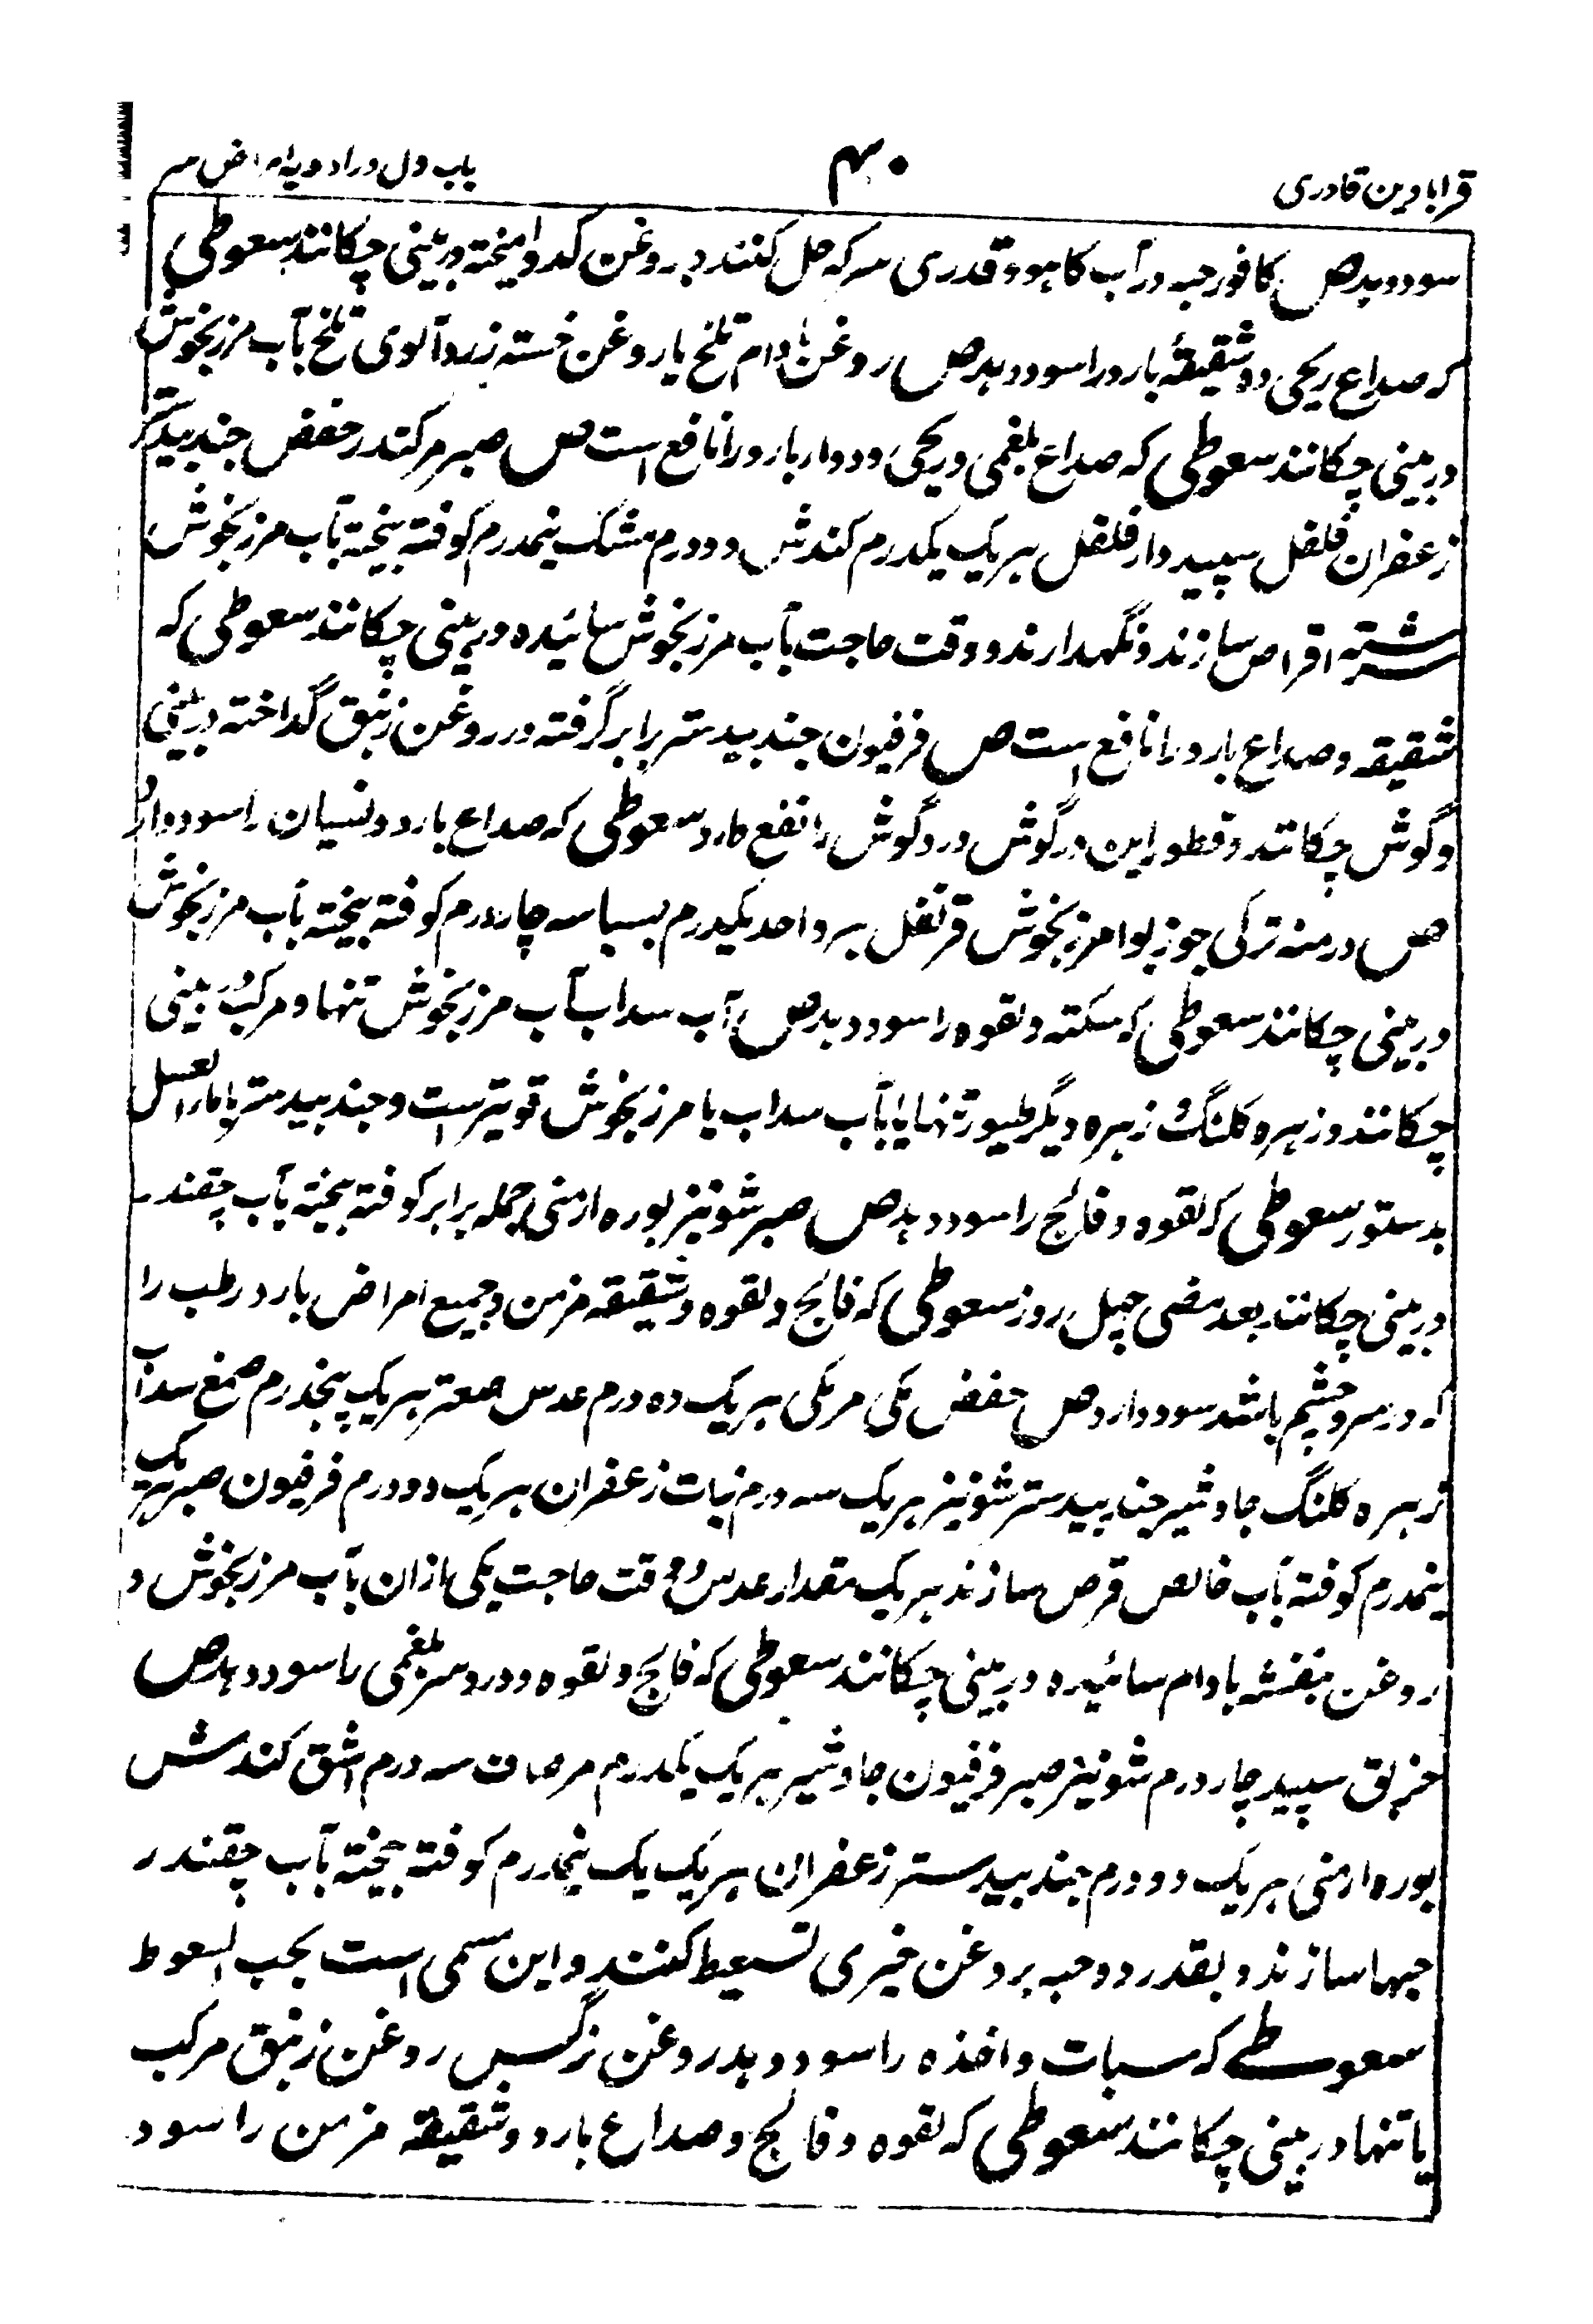 قرابادین قادری
۴۰
باب اول در ادویه امراض سر
سود دهد ص کافور حبه در آب کاهو و قدری سرکه حل کنند و بروغن کدو آمیخته در بینی چکانند سعوطی
که صداع ریحی و شقیقهٔ بارد را سود دهد ص روغن بادام تلخ یا روغن خسته زردآلوی تلخ بآب مرزنجوش
در بینی چکانند سعوطی که صداع بلغمی و ریحی و دوار بارد را نافع است ص صبر مر کندر حضض جندبیدستر
زعفران فلفل سپید دارفلفل هر یک یکدرم کندش دو درم مشک نیمدرم کوفته بیخته بآب مرزنجوش
سرشته اقراص سازند و نگهدارند و وقت حاجت بآب مرزنجوش سائیده در بینی چکانند سعوطی که
شقیقه و صداع بارد را نافع است ص فرفیون جندبیدستر برابر گرفته در روغن زنبق گداخته در بینی
و گوش چکانند و قطور این در گوش درد گوش را نفع دارد سعوطی که صداع بارد و نسیان را سود دارد
ص درمنه ترکی جوزبوا مرزنجوش قرنفل هر واحد یکدرم بسباسه چاردرم کوفته بیخته بآب مرزنجوش
در بینی چکانند سعوطی که سکته و لقوه را سود دهد ص آب سداب آب مرزنجوش تنها و مرکب در بینی
چکانند و زهره کلنگ و زهره دیگر طیور تنها یا بآب سداب یا مرزنجوش قویتر است و جندبیدستر با ماءالعسل
بدستور سعوطی که لقوه و فالج را سود دهد ص صبر شونیز بوره ارمنی جمله برابر کوفته بیخته بآب چقندر
در بینی چکانند بعد مضی چهل روز سعوطی که فالج و لقوه و شقیقه مزمن و جمیع امراض بارد رطب را
که در سر و چشم باشد سود دارد ص حضض مکی مر مکی هر یک ده درم عدس صعتر هر یک پنجدرم صمغ سداب
زهره کلنگ جاوشیر جندبیدستر شونیز هر یک سه درم نبات زعفران هر یک دو درم فرفیون صبر هر یک
نیمدرم کوفته بآب خالص قرص سازند هر یک مقدار عدس و وقت حاجت یکی ازان بآب مرزنجوش و
روغن بنفشه بادام سائیده در بینی چکانند سعوطی که فالج و لقوه و درد سر بلغمی را سود دهد ص
خربق سپید چاردرم شونیز صبر فرفیون جاوشیر هر یک یکدرم مر صاف سه درم اشق کندش
بوره ارمنی هر یک دو درم جندبیدستر زعفران هر یک یک نیمدرم کوفته بیخته بآب چقندر
حبها سازند و بقدر دو حبه بروغن خیری تسعیط کنند و این مسمی است بحب السعوط
سعوطے که سبات و اخذه را سود دهد روغن نرگس روغن زنبق مرکب
یا تنها در بینی چکانند سعوطی که لقوه و فالج و صداع بارد و شقیقه مزمن را سود